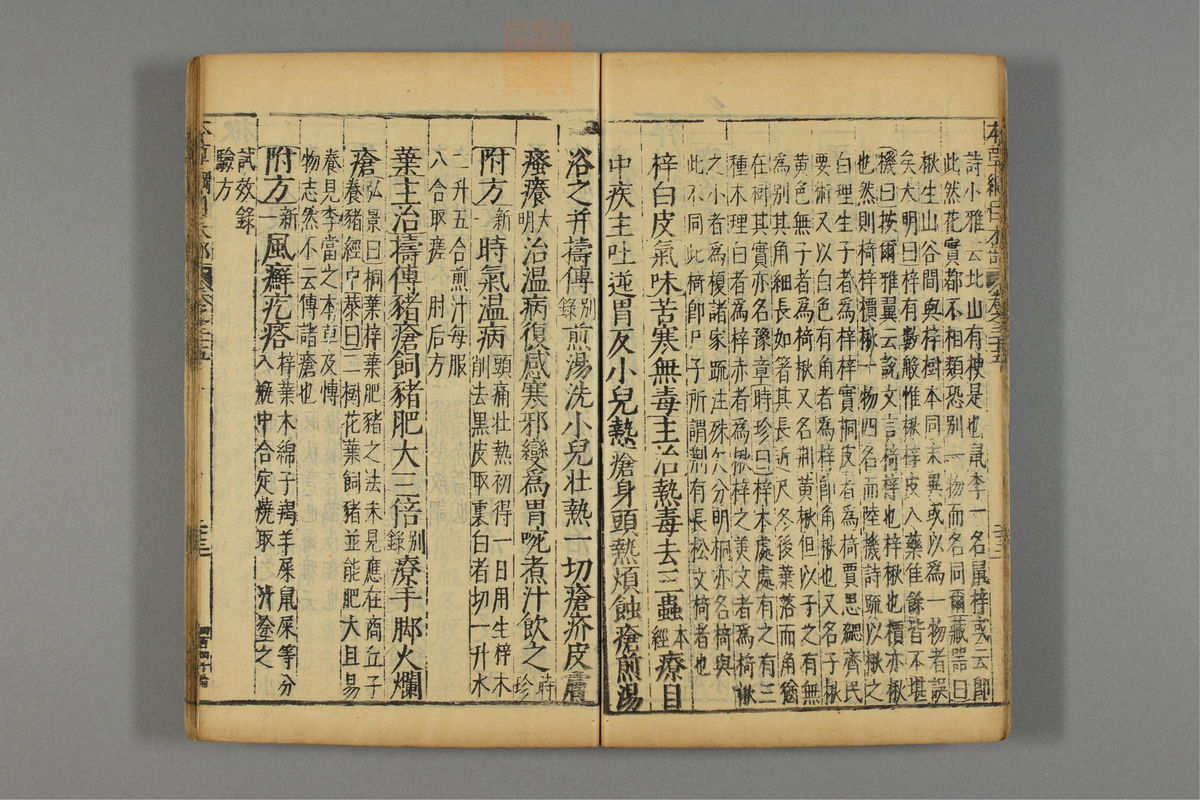 詩小雅云北山有楰是也鼠李一名鼠梓或云即
此然花實都不相類恐別一物而名同爾藏器曰
楸生山谷間與梓樹本同末異或以為一物者誤
矣大明曰梓有數般惟楸梓皮入藥佳餘皆不堪
機曰按爾雅翼云說文言椅梓也梓楸也檟亦楸
也然則椅梓檟楸一物四名而陸機詩疏以楸之
白理生子者為梓梓實桐皮者為椅賈思勰齊民
要術又以白色有角者為梓即角楸也又名子楸
黃色無子者為椅楸又名荆黃楸但以子之有無
為別其角細長如箸其長近尺冬後葉落而角猶
在樹其實亦名豫章時珍曰梓木處處有之有三
種木理白者為梓赤者為楸梓之美文者為椅楸
之小者為榎諸家疏注殊欠分明桐亦名椅與
此不同此椅即尸子所謂荆有長松文椅者也
梓白皮氣味苦寒無毒主治熱毒去三蟲本經療目
中疾主吐逆胃反小兒熱瘡身頭熱煩蝕瘡煎湯
浴之幷擣傅別錄煎湯洗小兒壯熱一切瘡疥皮膚
瘙癢大明治温病復感寒邪變為胃啘煮汁飲之時珍
附方新一時氣温病頭痛壯熱初得一日用生梓木
削去黑皮取裏白者切一升水
二升五合煎汁每服
八合取瘥 肘后方
葉主治擣傅豬瘡飼豬肥大三倍別錄療手脚火爛
瘡弘景曰桐葉梓葉肥豬之法未見應在商丘子
養豬經中恭曰二樹花葉飼豬並能肥大且易
養見李當之本草及博
物志然不云傅諸瘡也
附方新一風癬疙瘩梓葉木綿子羯羊屎鼠屎等分
入瓶中合定燒取汁塗之
試效錄
驗方